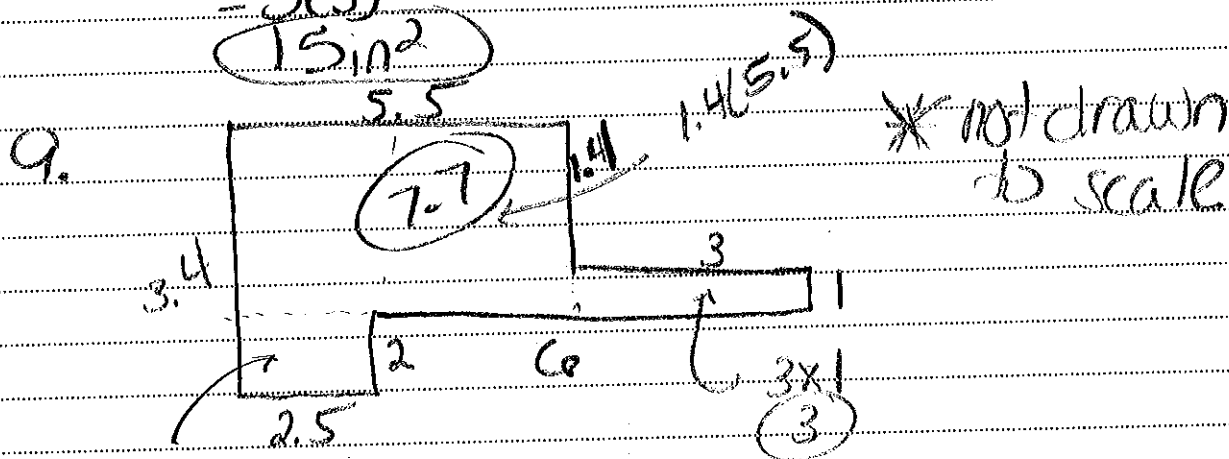 15in²
5.5
1.4(5.5)
* not drawn
to scale
9.
1.4
7.7
3
3.4
1
2
6
3x1
3
2.5